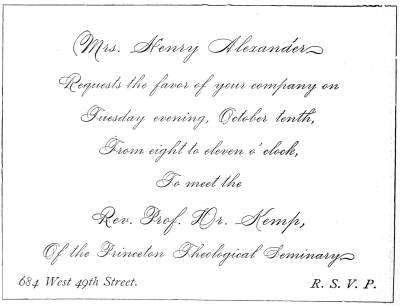 Mrs. Henry Alexander
Requests the favor of your company on
Tuesday evening, October tenth,
From eight to eleven o'clock,
To meet the
Rev. Prof. Dr. Kemp,
Of the Princeton Theological Seminary
684 West 49th Street. R. S. V. P.